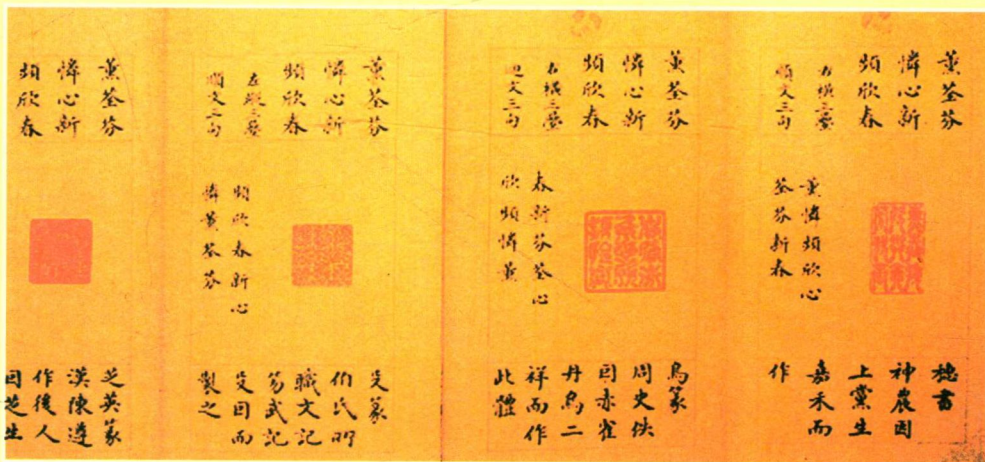 薰荃芬
憐心新
頻欣春
右橫三疊
順文三句
薰憐頻欣心
荃芬新春
穗書
神農因
上黨生
嘉禾而
作
薰荃芬
憐心新
頻欣春
右橫三疊
迴文三句
春新芬荃心
欣頻憐薰
鳥篆
周史佚
因赤雀
丹鳥二
祥而作
此體
薰荃芬
憐心新
頻欣春
左縱三疊
順文三句
頻欣春新心
憐薰荃芬
殳篆
伯氏所
職文記
笏武記
殳因而
製之
薰荃芬
憐心新
頻欣春
芝英篆
漢陳遵
作後人
因芝生